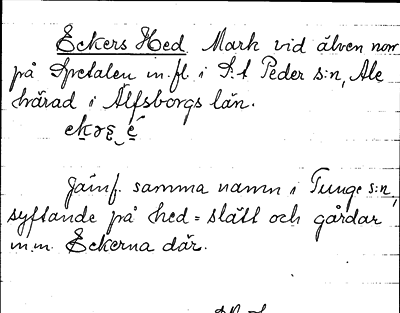 Eckers Hed. Mark vid älven norr
på Spetalen m. fl. i S:t Peder s:n, Ale
härad i Älfsborgs län.
Jämf. samma namn i Tunge s:n,
syftande på hed = slätt och gårdar
m.m. Eckerna där.